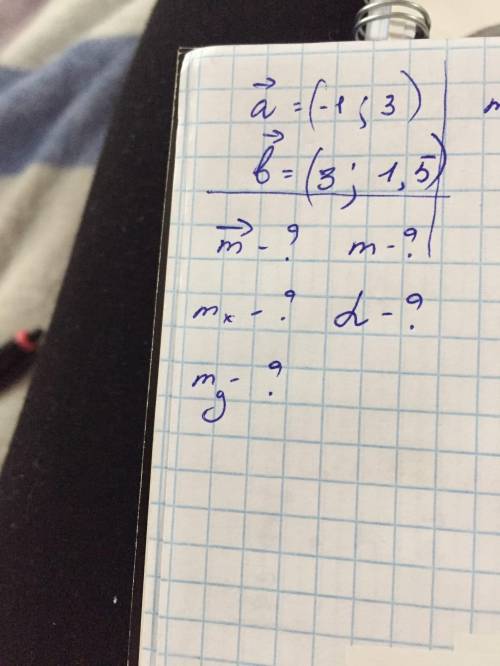 a⃗ = (-1 ; 3)
b⃗ = (3 ; 1,5)
m⃗ - ? m - ?
mₓ - ? α - ?
m_y - ?